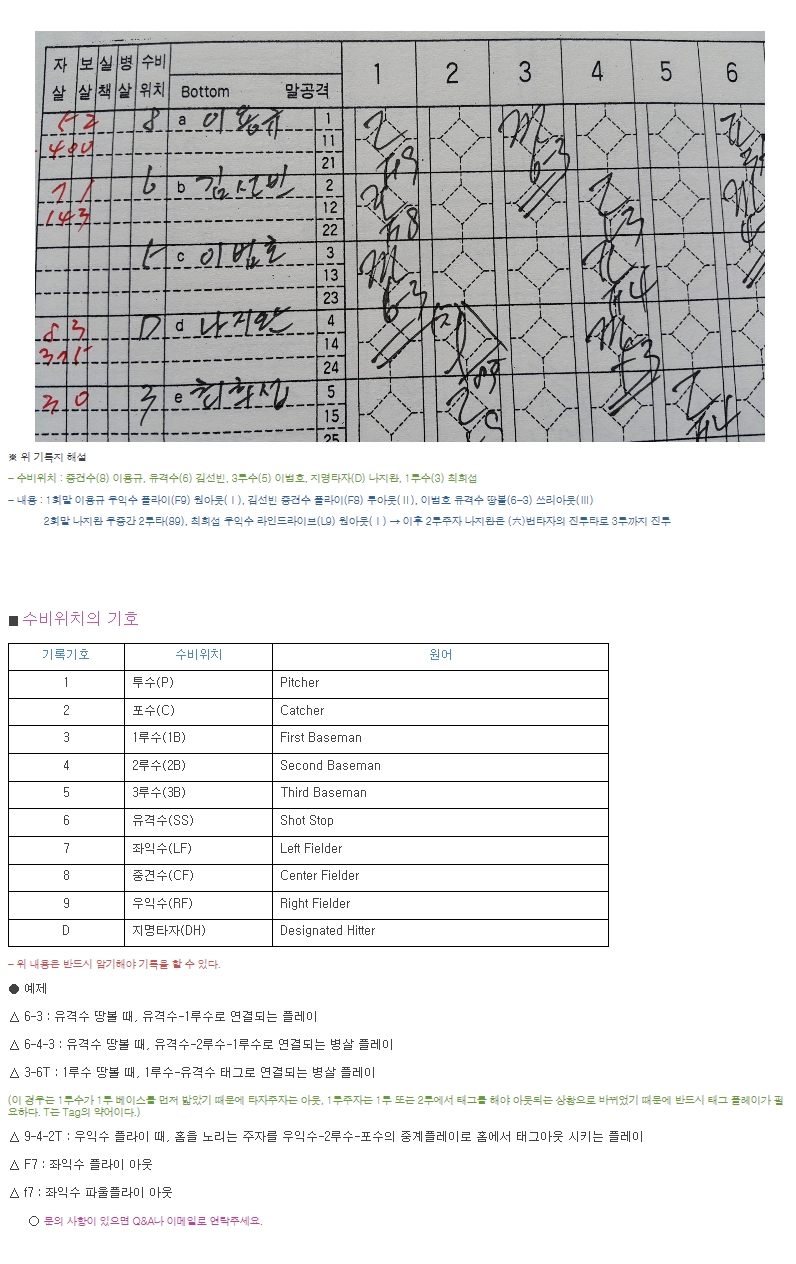 자 보 실 병 수비
살 살 책 살 위치 Bottom 말공격
1 2 3 4 5 6
8 a 이용규 1
400 11
21
6 b 김선빈 2
143 12
22
5 c 이범호 3
13
23
D d 나지완 4
14
24
3 0 3 e 최희섭 5
15
25
F9
6-3
F8
6-3
89
※ 위 기록지 해설
- 수비위치 : 중견수(8) 이용규, 유격수(6) 김선빈, 3루수(5) 이범호, 지명타자(D) 나지완, 1루수(3) 최희섭
- 내용 : 1회말 이용규 우익수 플라이(F9) 원아웃(Ⅰ), 김선빈 중견수 플라이(F8) 투아웃(Ⅱ), 이범호 유격수 땅볼(6-3) 쓰리아웃(Ⅲ)
2회말 나지완 우중간 2루타(89), 최희섭 우익수 라인드라이브(L9) 원아웃(Ⅰ) → 이후 2루주자 나지완은 (六)번타자의 진루타로 3루까지 진루
■ 수비위치의 기호
기록기호 수비위치 원어
1 투수(P) Pitcher
2 포수(C) Catcher
3 1루수(1B) First Baseman
4 2루수(2B) Second Baseman
5 3루수(3B) Third Baseman
6 유격수(SS) Shot Stop
7 좌익수(LF) Left Fielder
8 중견수(CF) Center Fielder
9 우익수(RF) Right Fielder
D 지명타자(DH) Designated Hitter
- 위 내용은 반드시 암기해야 기록을 할 수 있다.
● 예제
△ 6-3 : 유격수 땅볼 때, 유격수-1루수로 연결되는 플레이
△ 6-4-3 : 유격수 땅볼 때, 유격수-2루수-1루수로 연결되는 병살 플레이
△ 3-6T : 1루수 땅볼 때, 1루수-유격수 태그로 연결되는 병살 플레이
(이 경우는 1루수가 1루 베이스를 먼저 밟았기 때문에 타자주자는 아웃, 1루주자는 1루 또는 2루에서 태그를 해야 아웃되는 상황으로 바뀌었기 때문에 반드시 태그 플레이가 필
요하다. T는 Tag의 약어이다.)
△ 9-4-2T : 우익수 플라이 때, 홈을 노리는 주자를 우익수-2루수-포수의 중계플레이로 홈에서 태그아웃 시키는 플레이
△ F7 : 좌익수 플라이 아웃
△ f7 : 좌익수 파울플라이 아웃
○ 문의 사항이 있으면 Q&A나 이메일로 연락주세요.